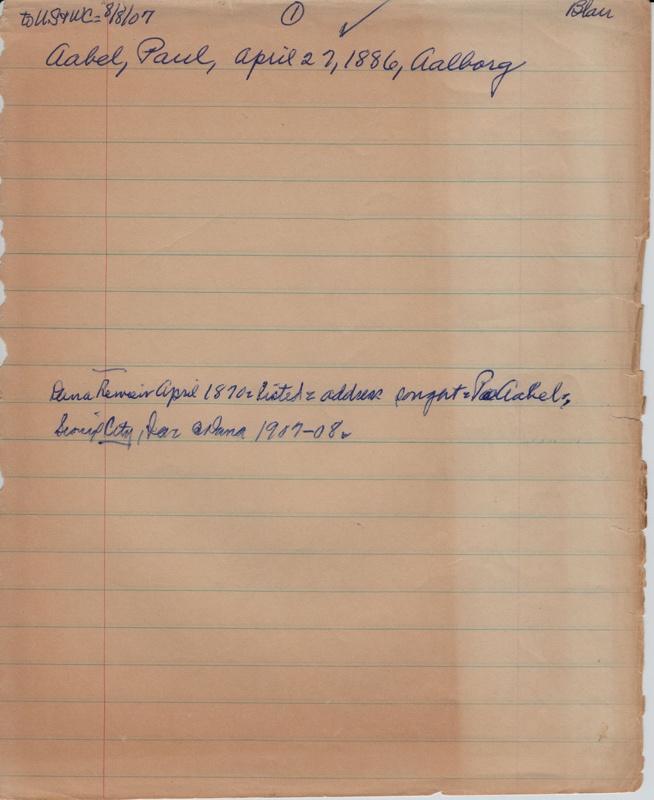 to US & WC = 8/8/07 ① ✓ Blair
Aabel, Paul, April 27, 1886, Aalborg
Dana Review April 1870 = Listed = address = Aabel,
Sioux City, Ia = @ Dana 1907-08